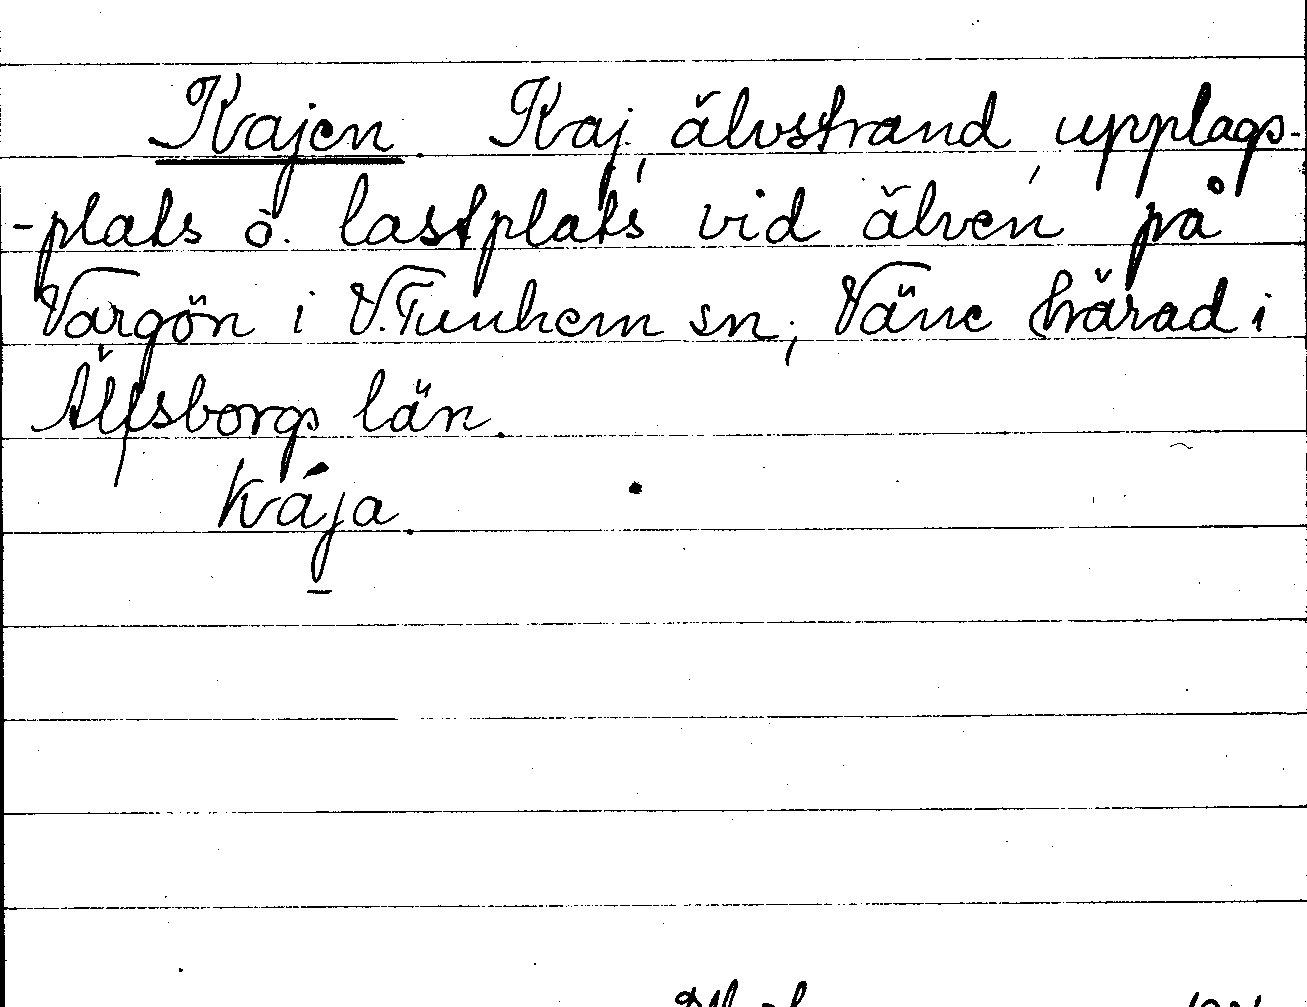 Kajen. Kaj, älvstrand, upplags-
-plats o. lastplats vid älven på
Vargön i V. Tunhem sn; Väne härad i
Älfsborgs län.
kája.